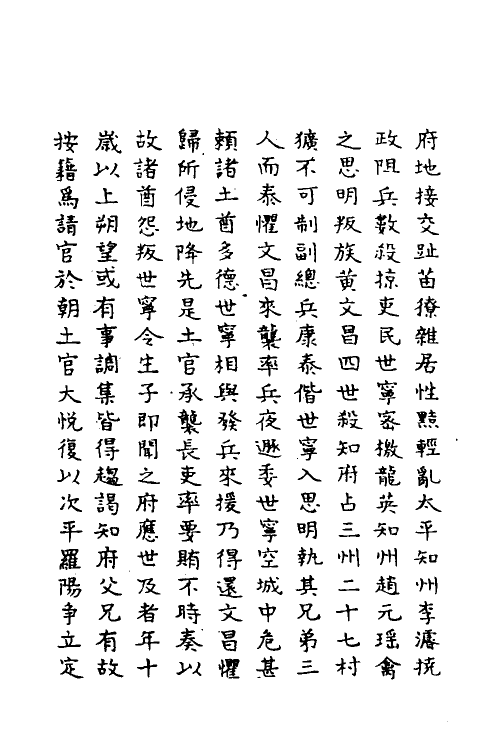 府地接交趾苗獠雜居性黠輕亂太平知州李濬抗
政阻兵數殺掠吏民世寧密檄龍英知州趙元瑶禽
之思明叛族黄文昌四世殺知府占三州二十七村
獷不可制副總兵康泰偕世寧入思明執其兄弟三
人而泰懼文昌來襲率兵夜遯委世寧空城中危甚
賴諸土酋多德世寧相與發兵來援乃得還文昌懼
歸所侵地降先是土官承襲長吏率要賄不時奏以
故諸酋怨叛世寧令生子即聞之府應世及者年十
歲以上朔望或有事調集皆得趨謁知府父兄有故
按籍爲請官於朝土官大悅復以次平羅陽爭立定